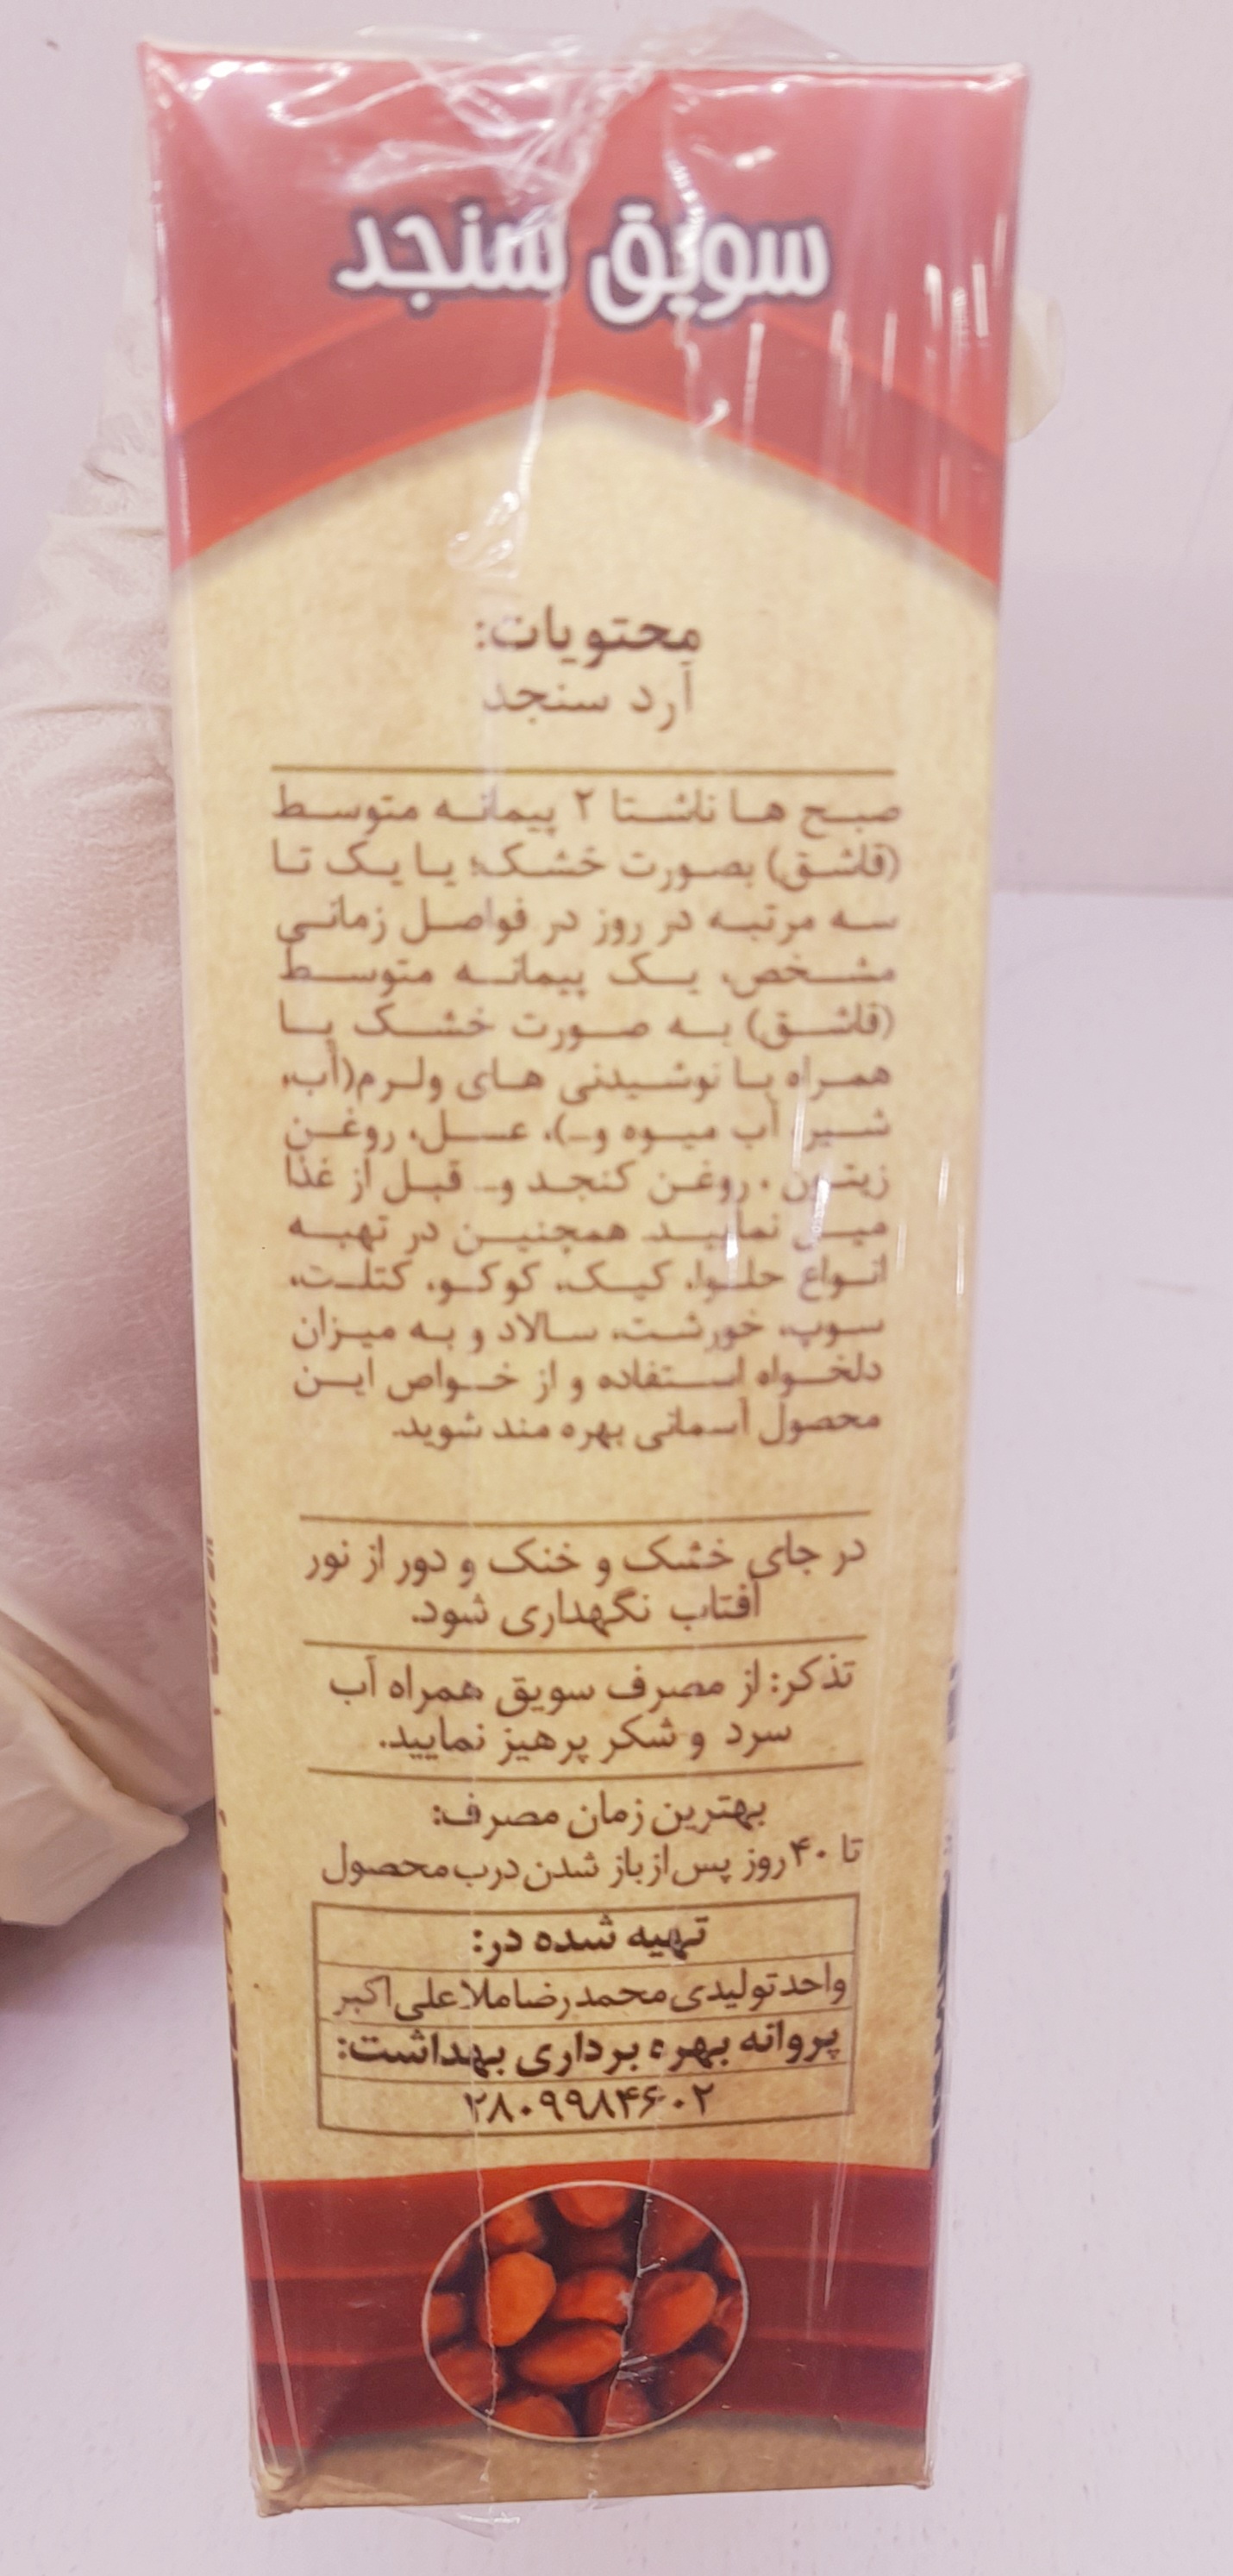 سویق سنجد
محتویات:
آرد سنجد
صبح ها ناشتا ۲ پیمانه متوسط
(قاشق) بصورت خشک؛ یا یک تا
سه مرتبه در روز در فواصل زمانی
مشخص، یک پیمانه متوسط
(قاشق) به صورت خشک یا
همراه با نوشیدنی های ولرم(آب،
شیر، آب میوه و...)، عسل، روغن
زیتون ، روغن کنجد و... قبل از غذا
میل نمایید. همچنین در تهیه
انواع حلوا، کیک، کوکو، کتلت،
سوپ، خورشت، سالاد و به میزان
دلخواه استفاده و از خواص این
محصول آسمانی بهره مند شوید.
در جای خشک و خنک و دور از نور
آفتاب نگهداری شود.
تذکر: از مصرف سویق همراه آب
سرد و شکر پرهیز نمایید.
بهترین زمان مصرف:
تا ۴۰ روز پس از باز شدن درب محصول
تهیه شده در:
واحد تولیدی محمدرضا ملاعلی اکبر
پروانه بهره برداری بهداشت:
۲۸۰۹۹۸۴۶۰۲